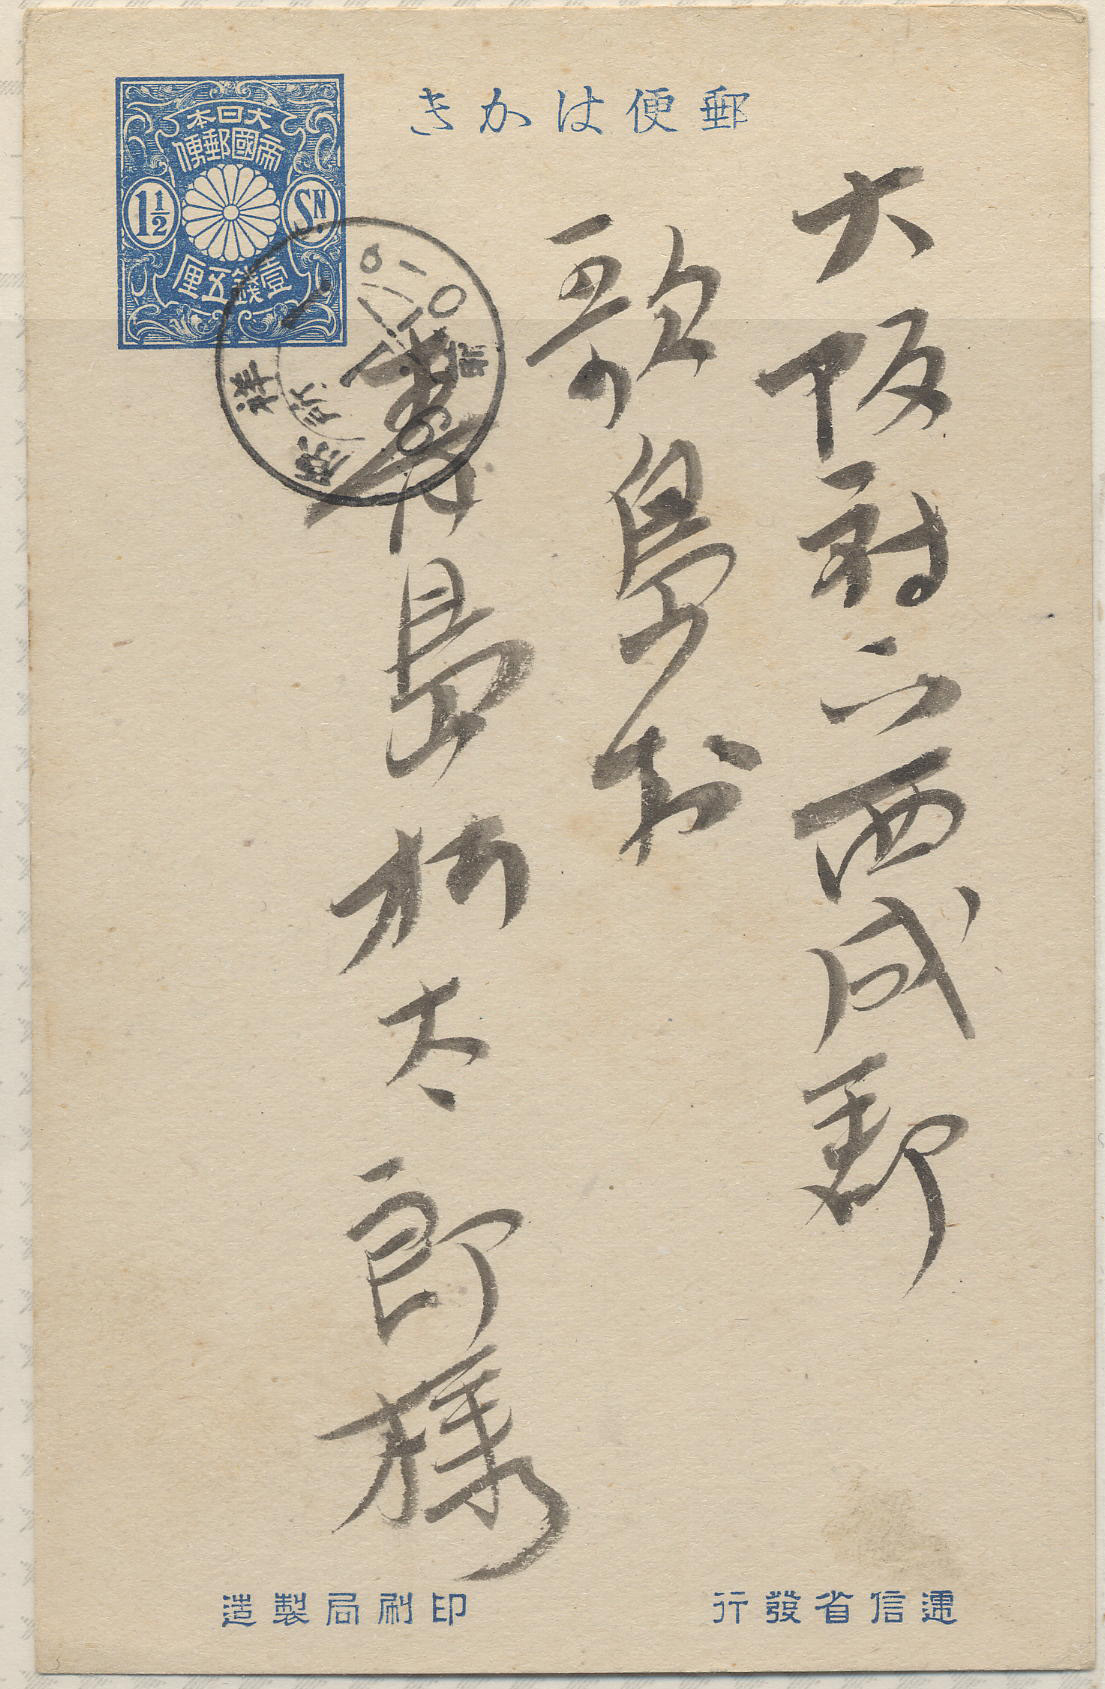 郵便はかき
大日本
帝國郵便
1½ SN
壹錢五厘
大阪府下西成郡
歌島村
島
太郎様
逓信省發行
印刷局製造